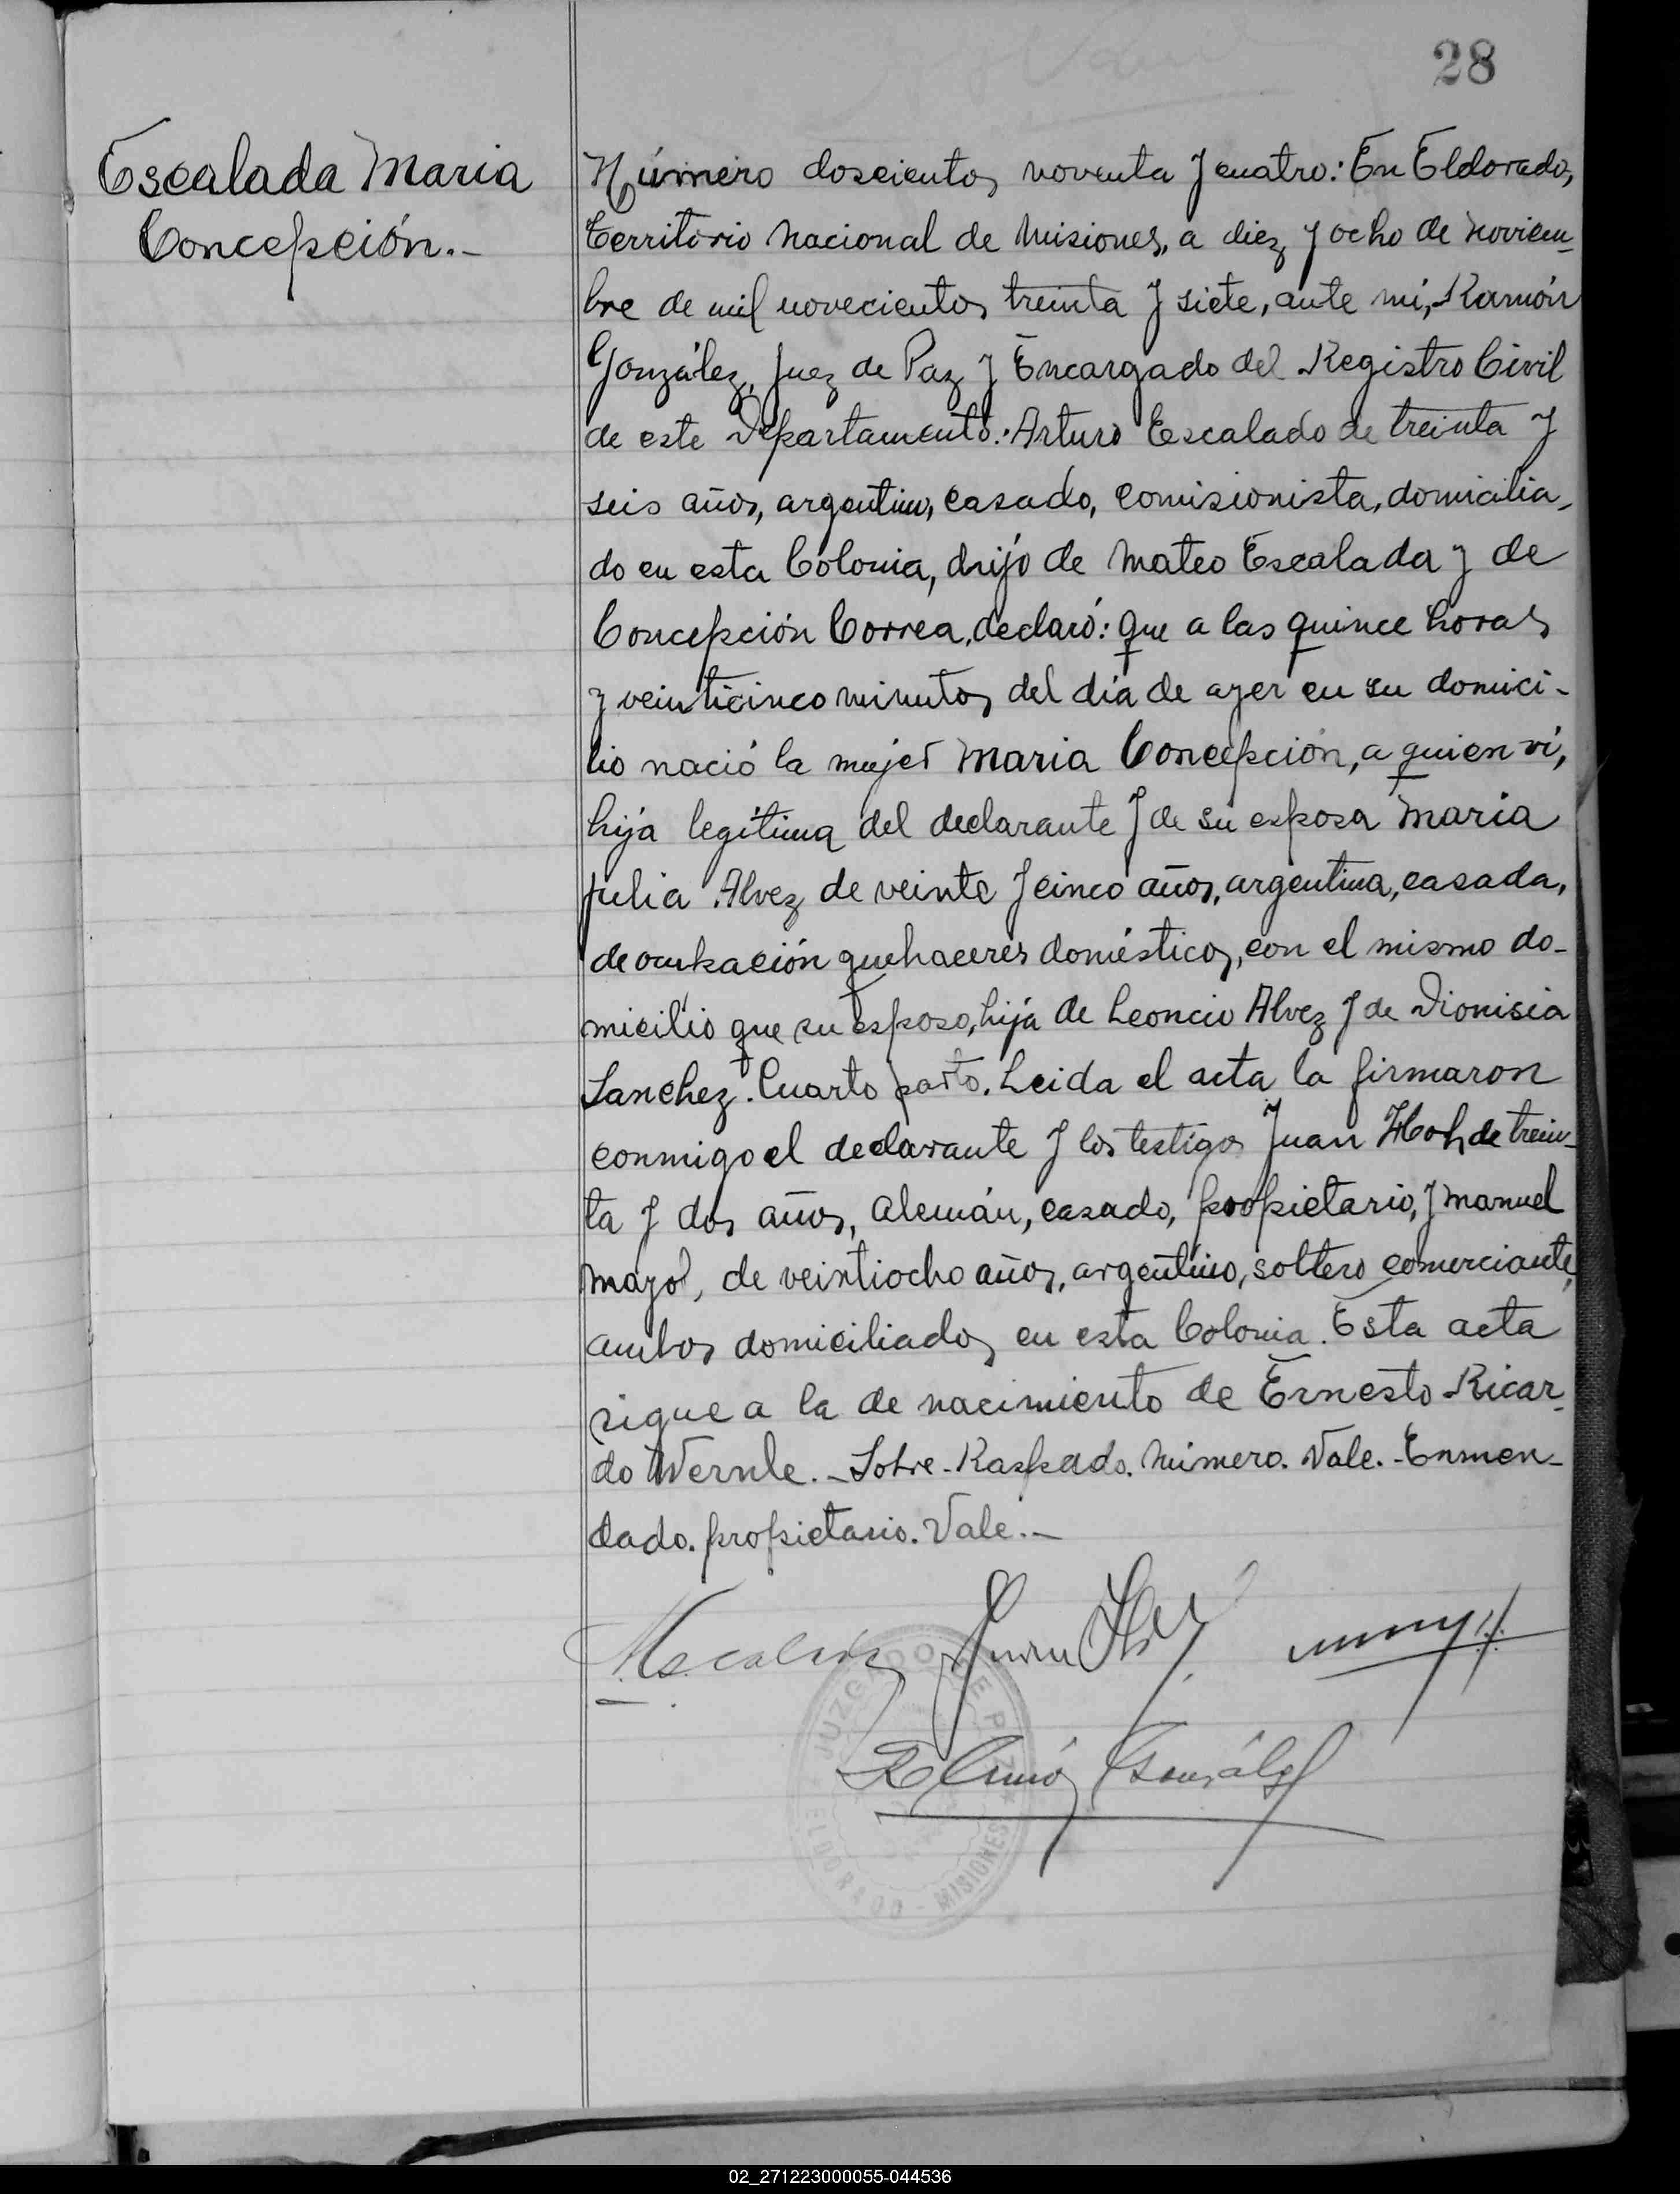 28
Escalada Maria
Concepción.-
Número doscientos noventa y cuatro: En Eldorado,
Territorio Nacional de Misiones, a diez y ocho de Noviem-
bre de mil novecientos treinta y siete, ante mí, Ramón
González, Juez de Paz y Encargado del Registro Civil
de este Departamento: Arturo Escalado de treinta y
seis años, argentino, casado, comisionista, domicilia-
do en esta Colonia, hijo de Mateo Escalada y de
Concepción Correa, declaró: que a las quince horas
y veinticinco minutos del día de ayer en su domici-
lio nació la mujer Maria Concepción, a quien ví,
hija legítima del declarante y de su esposa Maria
Julia Alvez de veinte y cinco años, argentina, casada,
de ocupación quehaceres domésticos, con el mismo do-
micilio que su esposo, hija de Leoncio Alvez y de Dionisia
Sanchez. Cuarto parto. Leida el acta la firmaron
conmigo el declarante y los testigos Juan de trein-
ta y dos años, Alemán, casado, propietario, y Manuel
Mayol, de veintiocho años, argentino, soltero comerciante,
ambos domiciliados en esta Colonia. Esta acta
sigue a la de nacimiento de Ernesto Ricar-
do Wernle.- Sobre-Raspado. Número. Vale.- Enmen-
dado. propietario. Vale.-
Juan
Ramón González
JUZGADO DE PAZ
ELDORADO - MISIONES
02_271223000055-044536